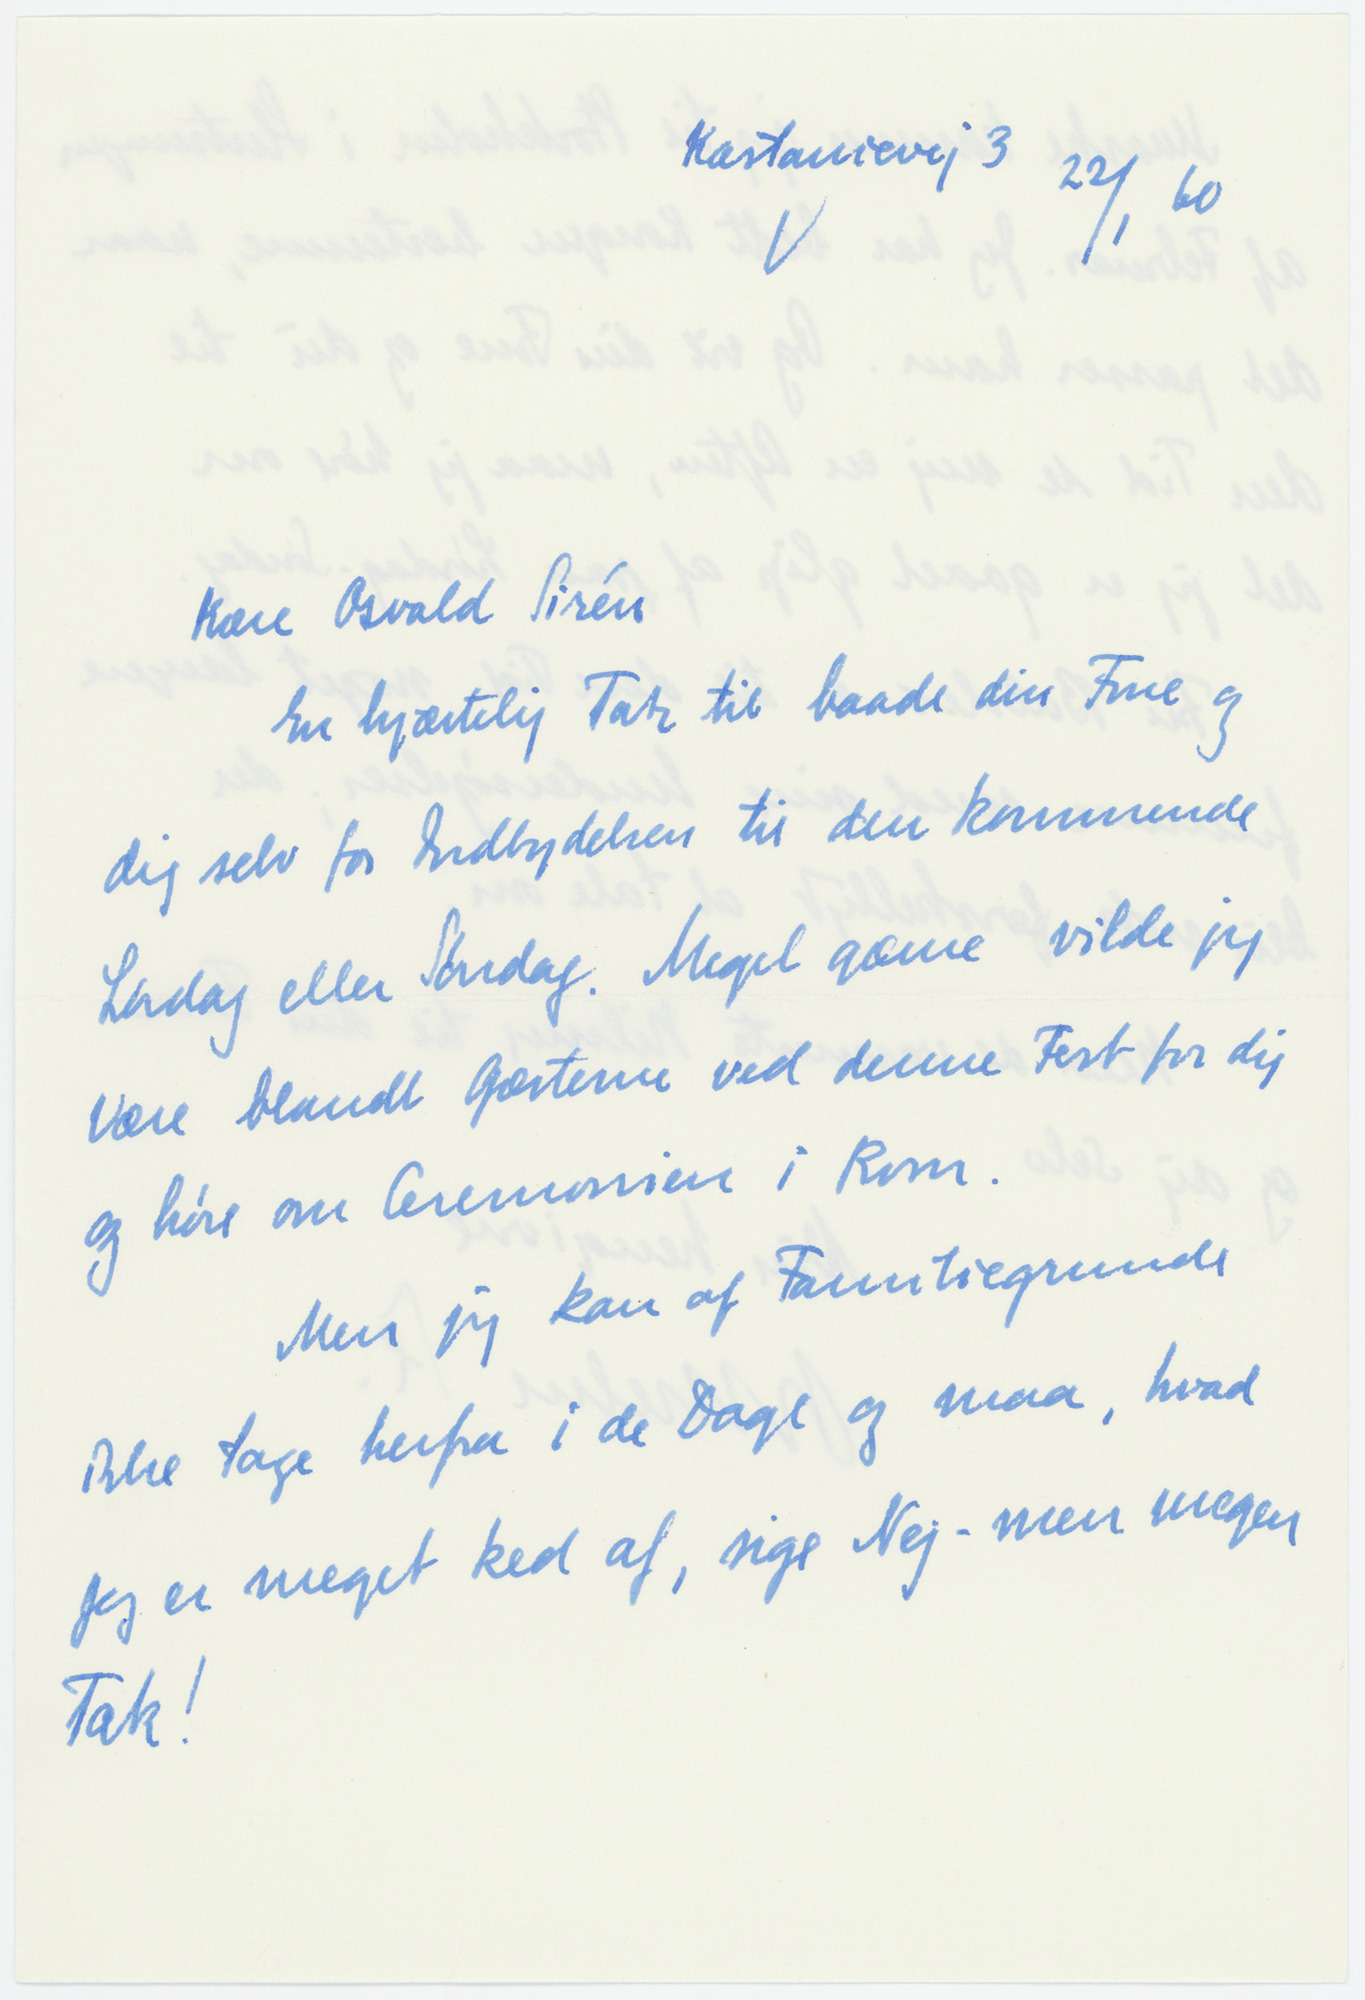 Kastanievej 3
V
22/1 60
Kære Osvald Sirén
En hjærtelig Tak til baade din Frue og
dig selv for Indbydelsen til den kommende
Lørdag eller Søndag. Meget gærne vilde jeg
være blandt Gæsterne ved denne Fest for dig
og høre om Ceremonien i Rom.
Men jeg kan af Familiegrunde
ikke tage herfra i de Dage og maa, hvad
jeg er meget ked af, sige Nej - men megen
Tak!